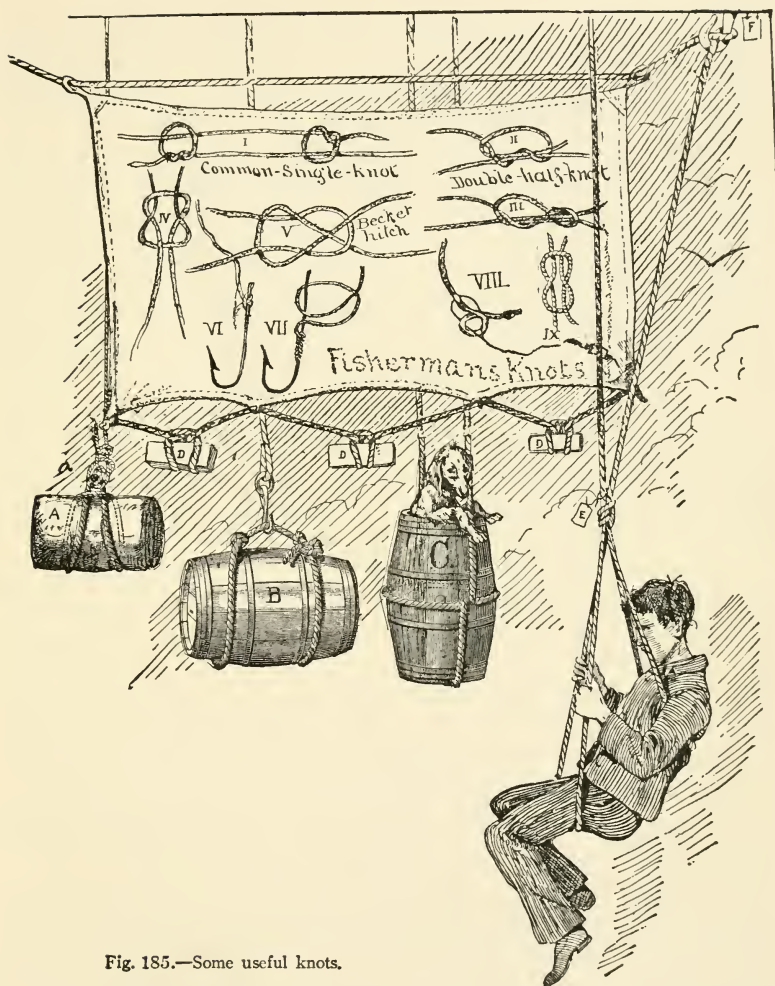 F
I
II
Common-Single-knot
Double-half-knot
IV
V
Becker
hitch
III
VI
VII
VIII
IX
Fishermans Knots
D
D
D
A
B
C
E
Fig. 185.—Some useful knots.